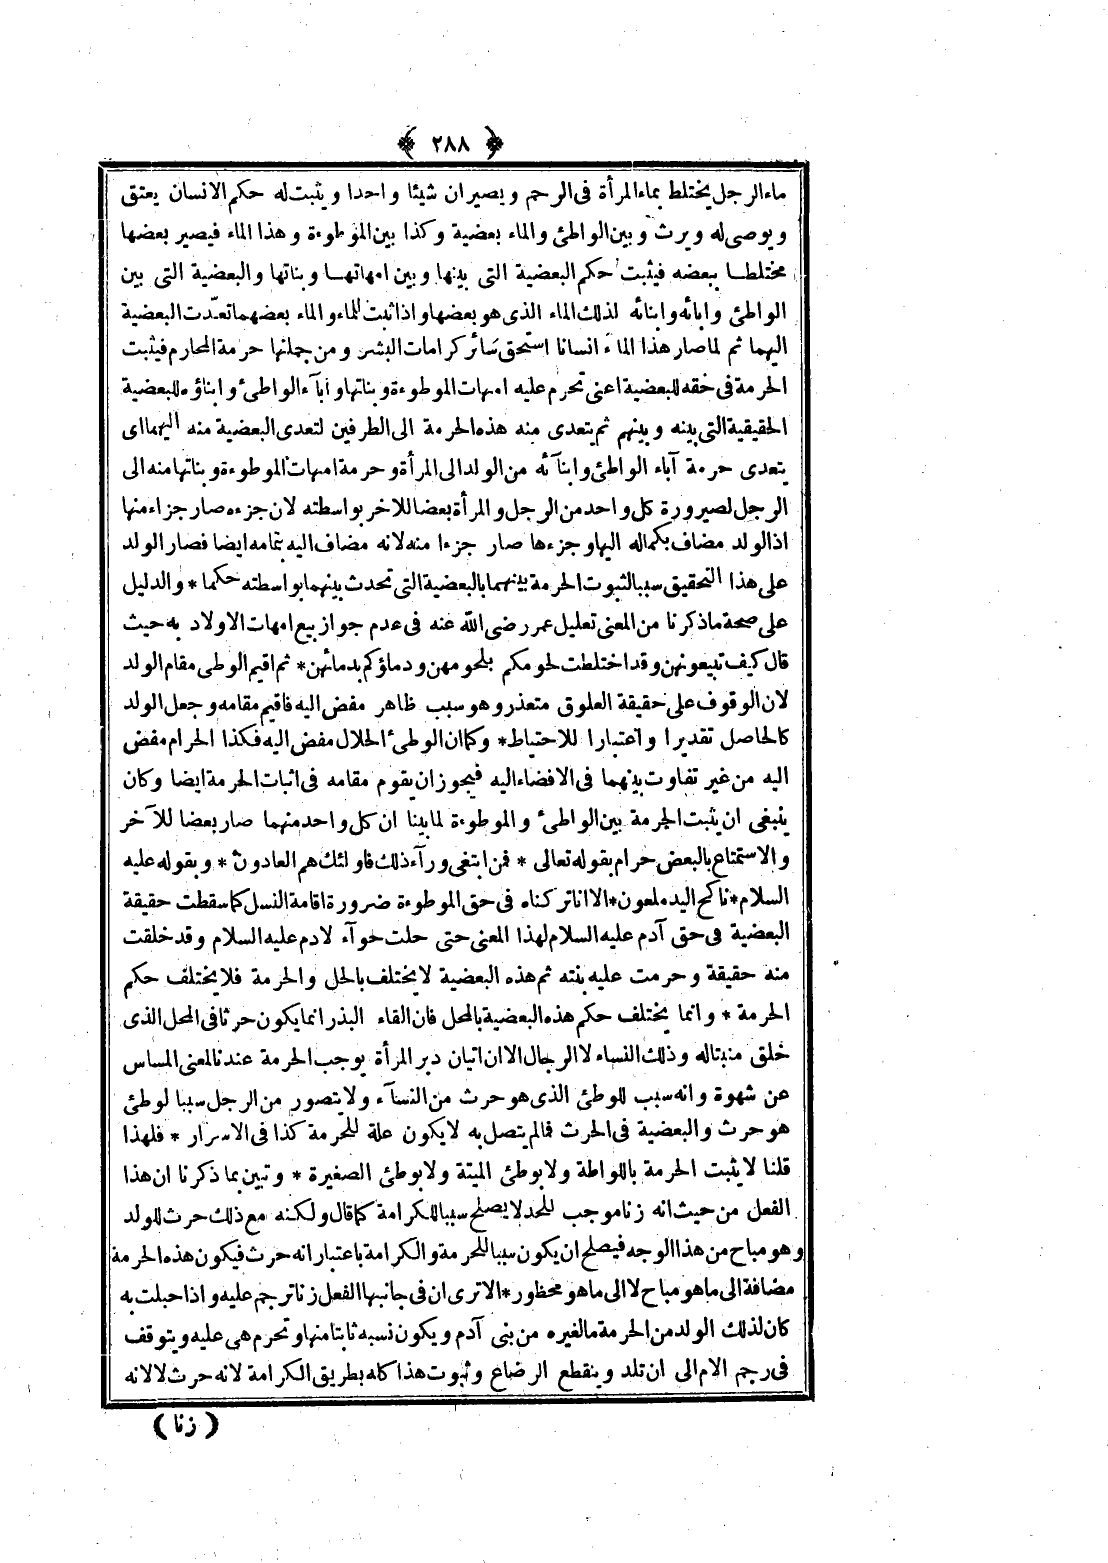 ﴿ ٢٨٨ ﴾
ماء الرجل يختلط بماء المرأة فى الرحم و يصيران شيئا واحدا و يثبت له حكم الانسان يعتق
و يوصى له و يرث و بين الواطئ والماء بعضية وكذا بين الموطوءة وهذا الماء فيصير بعضها
مختلطا ببعضه فيثبت حكم البعضية التى بينها و بين امهاتها و بناتها والبعضية التى بين
الواطئ وابائه وابنائه لذلك الماء الذى هو بعضها واذا ثبت للماء والماء بعضهما تعدّت البعضية
اليهما ثم لما صار هذا الماء انسانا استحق سائر كرامات البشر ومن جملتها حرمة المحارم فيثبت
الحرمة فى حقه للبعضية اعنى تحرم عليه امهات الموطوءة وبناتها وآباء الواطئ وابناؤه للبعضية
الحقيقية التى بينه و بينهم ثم يتعدى منه هذه الحرمة الى الطرفين لتعدى البعضية منه اليهما اى
يتعدى حرمة آباء الواطئ وابنائه من الولد الى المرأة وحرمة امهات الموطوءة وبناتها منه الى
الرجل لصيرورة كل واحد من الرجل والمرأة بعضا للاخر بواسطته لان جزءه صار جزاء منها
اذ الولد مضاف بكماله اليها وجزءها صار جزءا منه لانه مضاف اليه بتمامه ايضا فصار الولد
على هذا التحقيق سببا لثبوت الحرمة بينهما بالبعضية التى تحدث بينهما بواسطته حكما * والدليل
على صحة ماذكرنا من المعنى تعليل عمر رضى الله عنه فى عدم جواز بيع امهات الاولاد به حيث
قال كيف تبيعونهن وقد اختلطت لحومكم بلحومهن ودماؤكم بدمائهن * ثم اقيم الوطى مقام الولد
لان الوقوف على حقيقة العلوق متعذر وهو سبب ظاهر مفض اليه فاقيم مقامه وجعل الولد
كالحاصل تقديرا واعتبارا للاحتياط * وكما ان الوطئ الحلال مفض اليه فكذا الحرام مفض
اليه من غير تفاوت بينهما فى الافضاء اليه فيجوز ان يقوم مقامه فى اثبات الحرمة ايضا وكان
ينبغى ان يثبت الحرمة بين الواطئ والموطوءة لما بينا ان كل واحد منهما صار بعضا للآخر
والاستمتاع بالبعض حرام بقوله تعالى * فمن ابتغى ورآء ذلك فاولئك هم العادون * و بقوله عليه
السلام * ناكح اليد ملعون * الا انا تركناه فى حق الموطوءة ضرورة اقامة النسل كما سقطت حقيقة
البعضية فى حق آدم عليه السلام لهذا المعنى حتى حلت حوآء لادم عليه السلام وقد خلقت
منه حقيقة وحرمت عليه بنته ثم هذه البعضية لا يختلف بالحل والحرمة فلا يختلف حكم
الحرمة * وانما يختلف حكم هذه البعضية بالمحل فان القاء البذر انما يكون حرثا فى المحل الذى
خلق منبتاله وذلك النساء لا الرجال الا ان اتيان دبر المرأة يوجب الحرمة عندنا لمعنى المساس
عن شهوة وانه سبب للوطئ الذى هو حرث من النسآء ولا يتصور من الرجل سببا لوطئ
هو حرث والبعضية فى الحرث فما لم يتصل به لا يكون علة للحرمة كذا فى الاسرار * فلهذا
قلنا لا يثبت الحرمة باللواطة ولا بوطئ الميتة ولا بوطئ الصغيرة * وتبين بما ذكرنا ان هذا
الفعل من حيث انه زنا موجب للحد لا يصلح سببا للكرامة كما قال ولكنه مع ذلك حرث للولد
وهو مباح من هذا الوجه فيصلح ان يكون سببا للحرمة والكرامة باعتبار انه حرث فيكون هذه الحرمة
مضافة الى ما هو مباح لا الى ما هو محظور * الاترى ان فى جانبها الفعل زنا ترجم عليه واذا حبلت به
كان لذلك الولد من الحرمة ما لغيره من بنى آدم ويكون نسبه ثابتا منها وتحرم هى عليه ويتوقف
فى رجم الام الى ان تلد وينقطع الرضاع وثبوت هذا كله بطريق الكرامة لانه حرث لا لانه
( زنا )